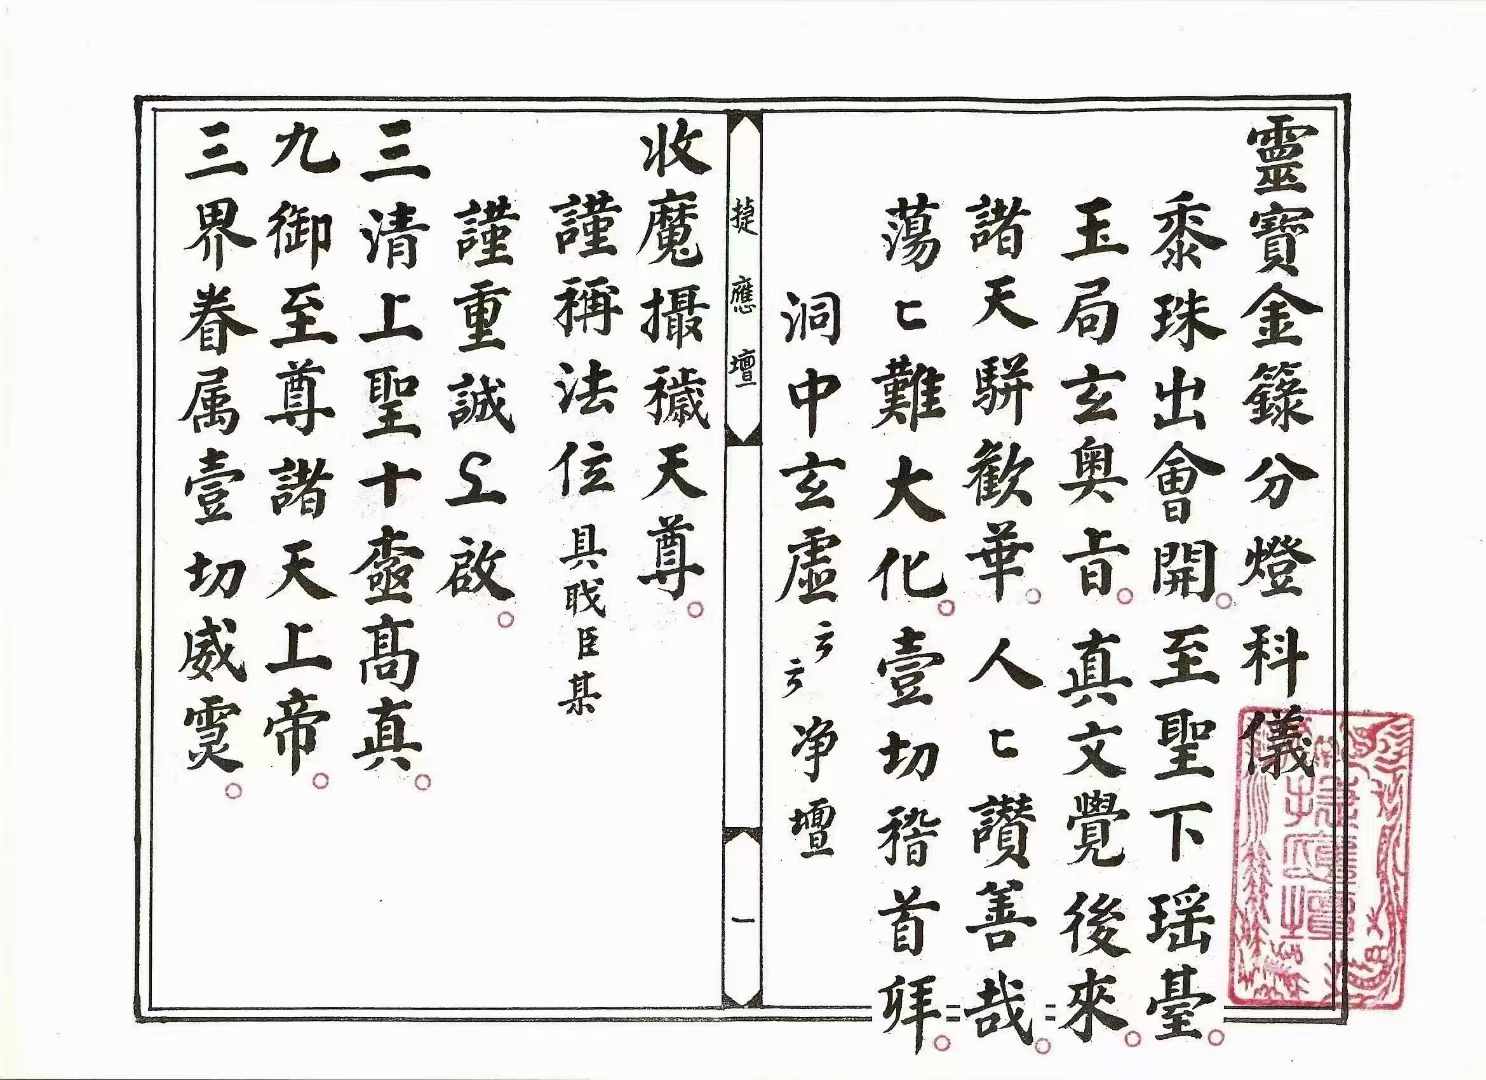 靈寶金籙分燈科儀
黍珠出會開。至聖下瑶臺。
玉局玄奧旨。真文覺後來。
諸天駢歡華。人匕讃善哉。
蕩匕難大化。壹切稽首拜。
洞中玄虛云云净壇
捷應壇
一
收魔攝穢天尊。
謹稱法位具職臣某
謹重誠上啟。
三清上聖十靈高真。
九御至尊諸天上帝。
三界眷属壹切威灵。
捷應壇